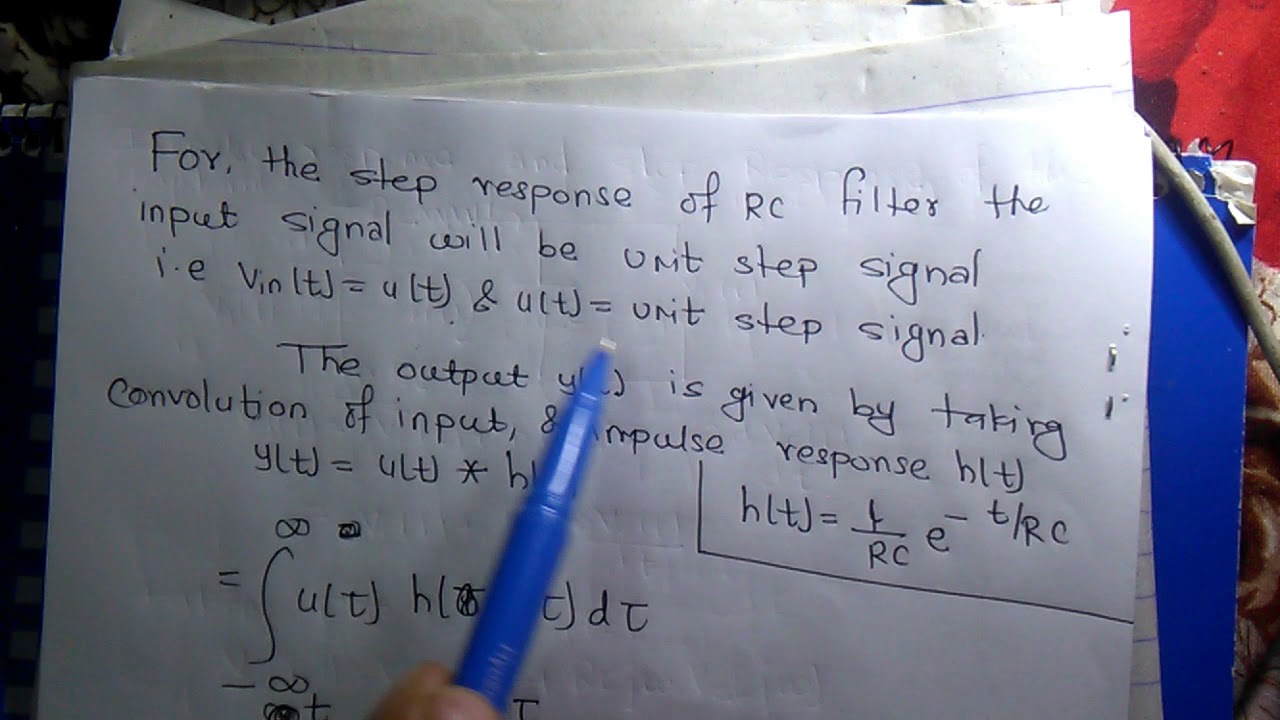 For, the step response of RC filter the
input signal will be unit step signal
i.e Vin(t) = u(t) & u(t) = unit step signal.
The output y(t) is given by taking
Convolution of input, & impulse response h(t)
y(t) = u(t) * h(
h(t) = 1/RC e^- t/RC
∞
= ∫ u(τ) h(t τ) dτ
- ∞
t τ